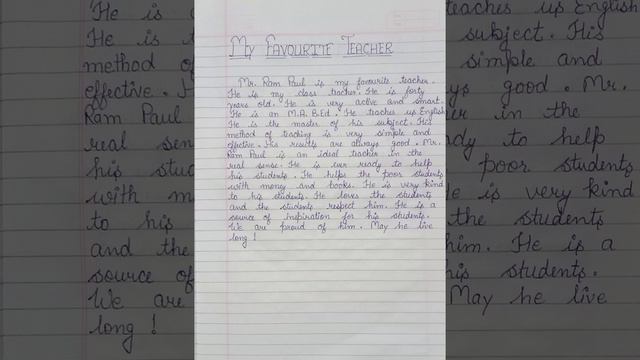 My Favourite Teacher
Mr. Ram Paul is my favourite teacher.
He is my class teacher. He is forty
years old. He is very active and smart.
He is an M.A. B.Ed. He teaches us English
He is the master of his subject. His
method of teaching is very simple and
effective. His results are always good. Mr.
Ram Paul is an ideal teacher in the
real sense. He is ever ready to help
his students. He helps the poor students
with money and books. He is very kind
to his students. He loves the students
and the students respect him. He is a
source of inspiration for his students.
We are proud of him. May he live
long!